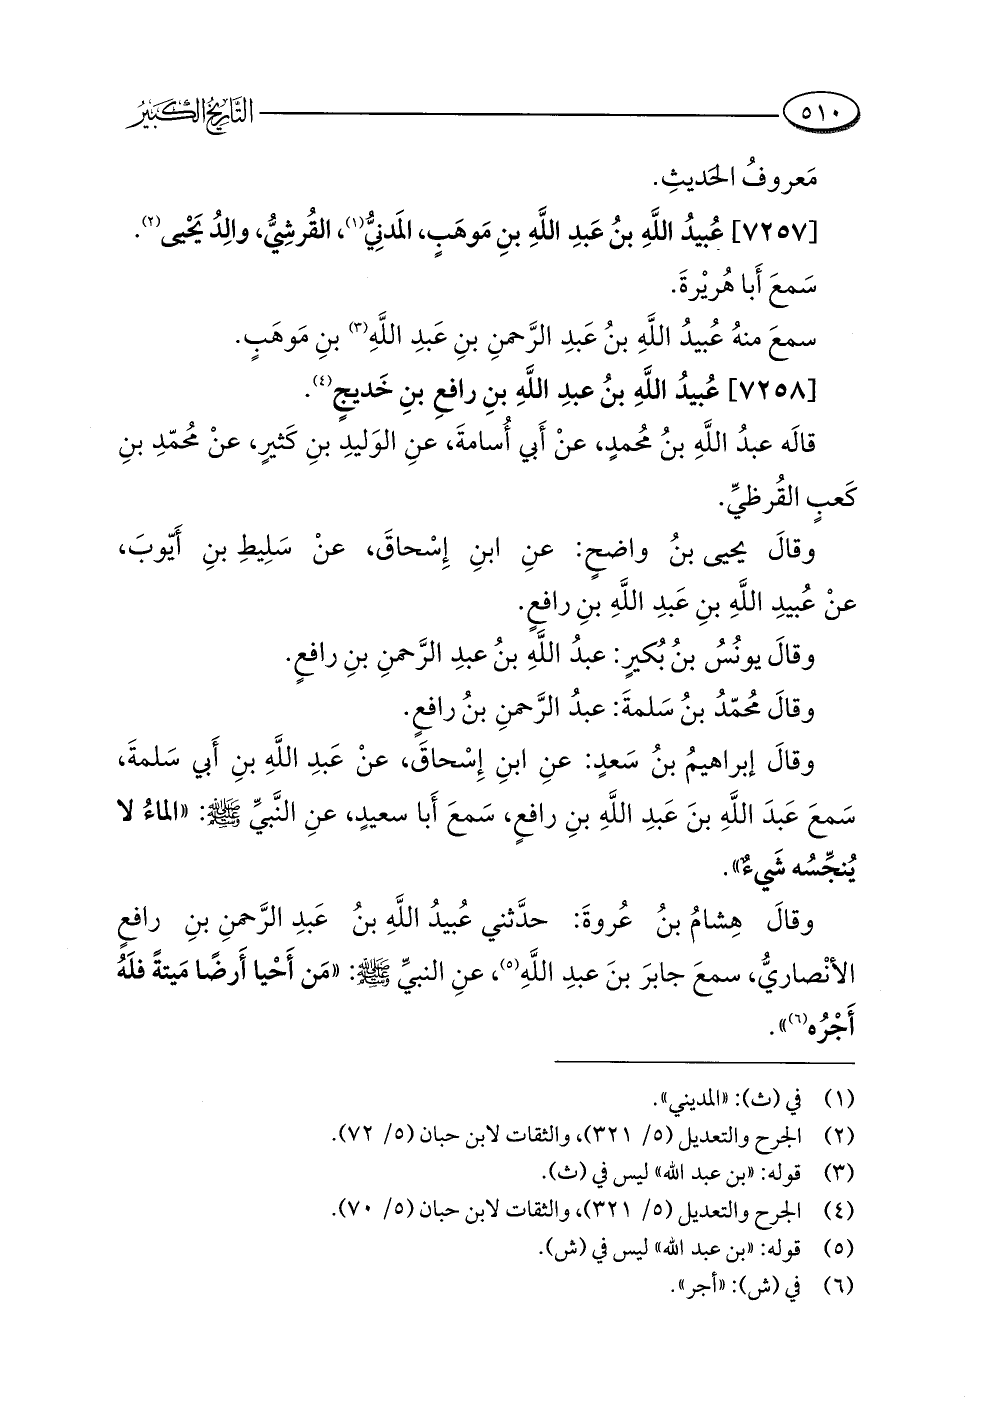 ٥١٠ التَّارِيخُ الكَبِيرُ
مَعروفُ الحَديثِ.
[٧٢٥٧] عُبيدُ اللَّهِ بنُ عَبدِ اللَّهِ بنِ مَوهَبٍ، المَدنيُّ(١)، القُرشِيُّ، والِدُ يَحْيى(٢).
سَمعَ أَبا هُريْرةَ.
سمعَ منهُ عُبيدُ اللَّهِ بنُ عَبدِ الرَّحمنِ بنِ عَبدِ اللَّهِ(٣) بنِ مَوهَبٍ.
[٧٢٥٨] عُبيدُ اللَّهِ بنُ عبدِ اللَّهِ بنِ رافعِ بنِ خَديجٍ(٤).
قالَه عبدُ اللَّهِ بنُ مُحمدٍ، عنْ أَبي أُسامةَ، عنِ الوَليدِ بنِ كَثيرٍ، عنْ مُحمّدِ بنِ
كَعبٍ القُرظيِّ.
وقالَ يحيى بنُ واضحٍ: عنِ ابنِ إِسْحاقَ، عنْ سَلِيطِ بنِ أَيّوبَ،
عنْ عُبيدِ اللَّهِ بنِ عَبدِ اللَّهِ بنِ رافعٍ.
وقالَ يونُسُ بنُ بُكيرٍ: عبدُ اللَّهِ بنُ عبدِ الرَّحمنِ بنِ رافعٍ.
وقالَ مُحمّدُ بنُ سَلمةَ: عبدُ الرَّحمنِ بنُ رافعٍ.
وقالَ إبراهيمُ بنُ سَعدٍ: عنِ ابنِ إِسْحاقَ، عنْ عَبدِ اللَّهِ بنِ أَبي سَلمةَ،
سَمعَ عَبدَ اللَّهِ بنَ عَبدِ اللَّهِ بنِ رافعٍ، سَمعَ أَبا سعيدٍ، عنِ النَّبيِّ ﷺ: «الماءُ لا
يُنجِّسُه شَيءٌ».
وقالَ هِشامُ بنُ عُروةَ: حدَّثني عُبيدُ اللَّهِ بنُ عَبدِ الرَّحمنِ بنِ رافعٍ
الأنْصاريُّ، سمعَ جابرَ بنَ عبدِ اللَّهِ(٥)، عنِ النبيِّ ﷺ: «مَن أَحْيا أَرضًا مَيتةً فلَهُ
أَجْرُه(٦)».
(١) في (ث): «المديني».
(٢) الجرح والتعديل (٥/ ٣٢١)، والثقات لابن حبان (٥/ ٧٢).
(٣) قوله: «بن عبد الله» ليس في (ث).
(٤) الجرح والتعديل (٥/ ٣٢١)، والثقات لابن حبان (٥/ ٧٠).
(٥) قوله: «بن عبد الله» ليس في (ش).
(٦) في (ش): «أجر».